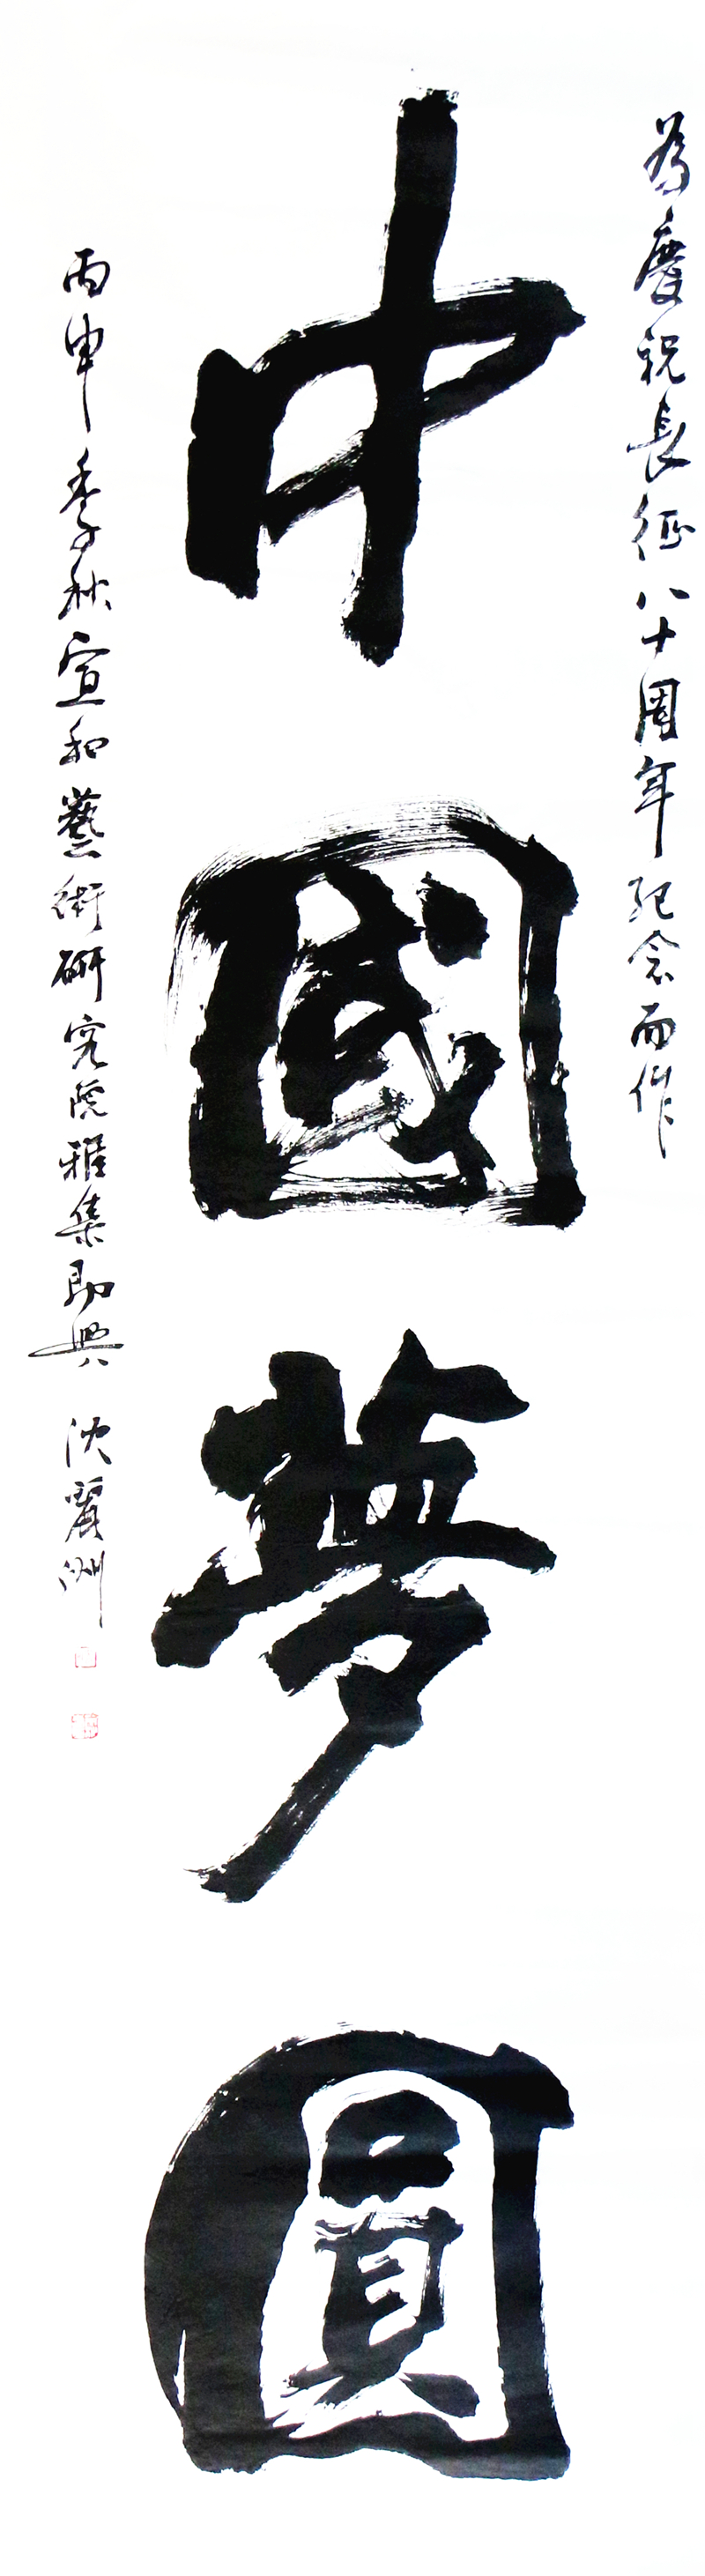 為慶祝長征八十周年紀念而作
中國夢圓
丙申季秋宣和藝術研究院雅集即興 沈麗洲